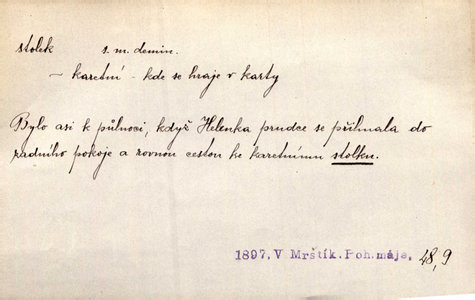 stolek s. m. demin.
– karetní – kde se hraje v karty
Bylo asi k půlnoci, když Helenka prudce se přihnala do
zadního pokoje a rovnou cestou ke karetnímu stolku.
1897, V Mrštík. Poh. máje, 48, 9